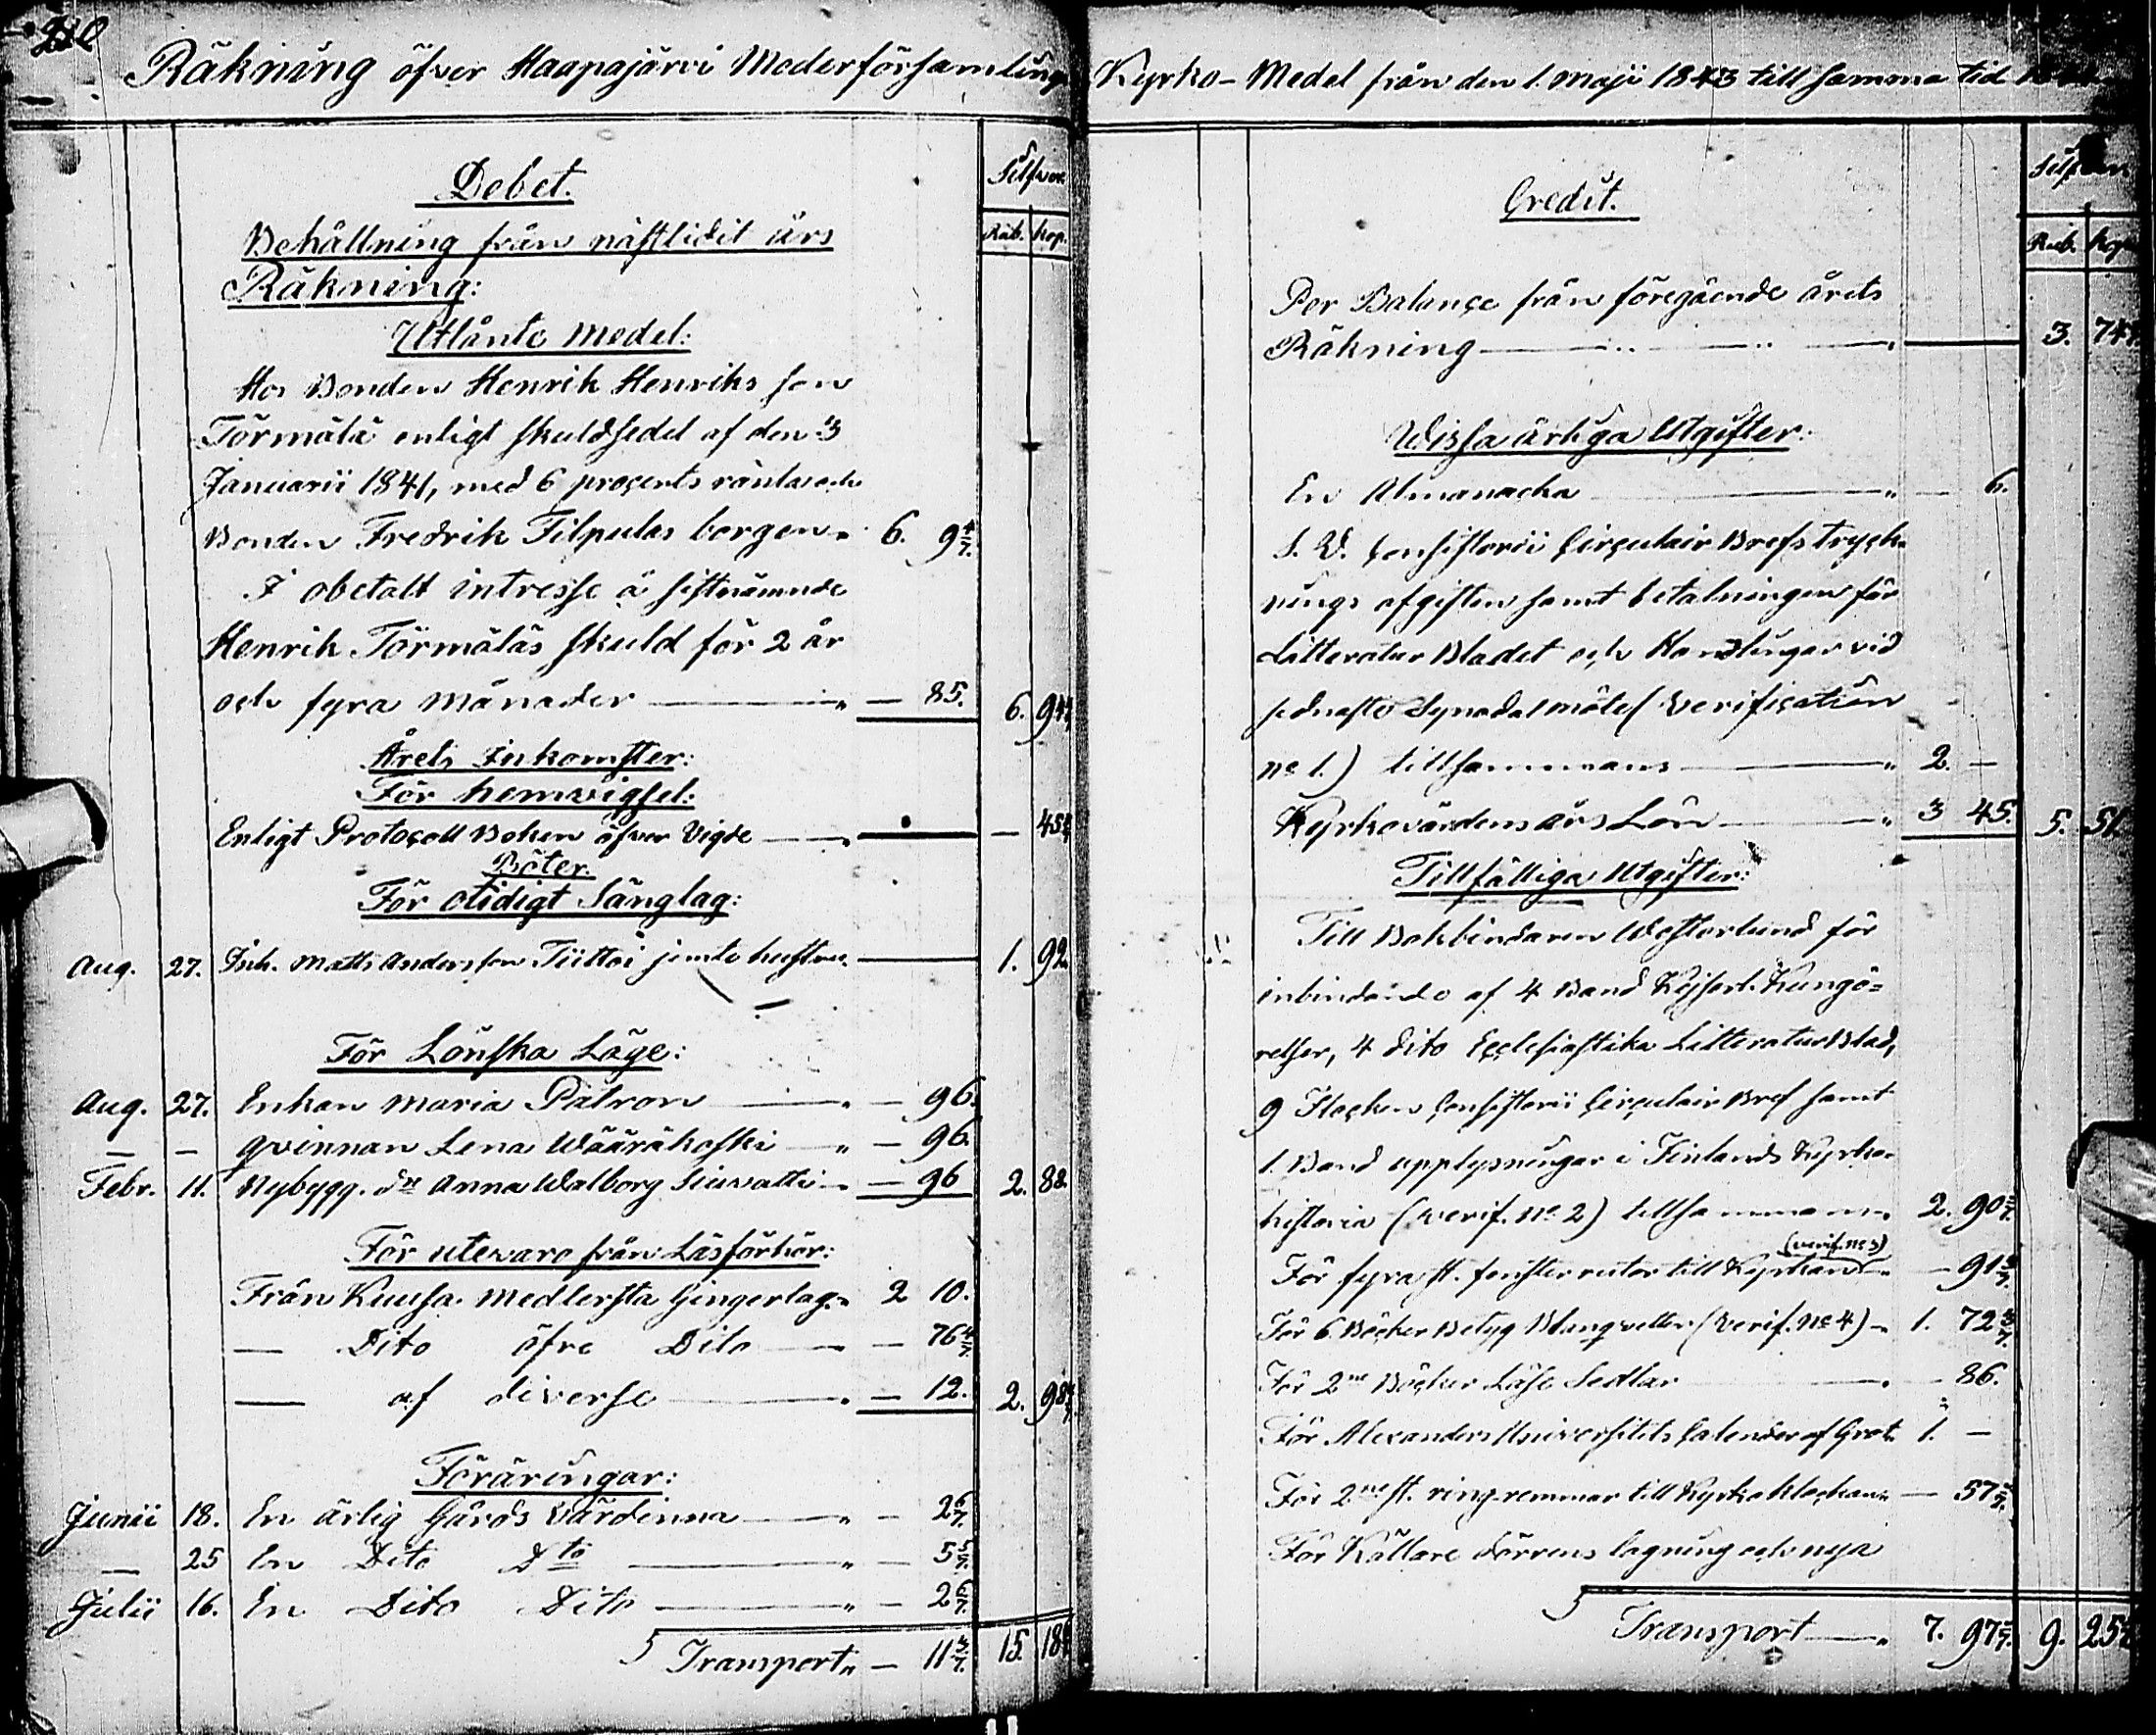 Räkning öfver Haapajärvi Moderförsamlings Kyrko-Medel från den 1. Maji 1843 till samma tid
Debet.
Silfver.
Rub. Kop.
Behållning från nästlidit års
Räkning:
Utlånte Medel:
Hos Bonden Henrik Henriks son
Törmälä enligt skuldsedel af den 3
Januarii 1841, med 6 procents ränta och
Bonden Fredrik Tilpulas borgen " 6. 9 4/7.
I obetalt intresse å sistnämnde
Henrik Törmäläs skuld för 2 år
och fyra Månader " — 85. 6. 94 4/7
Årets Inkomster:
För hemvigsel:
Enligt Protocoll Boken öfver Vigde — 45
Böter.
För otidigt Sänglag:
Aug. 27. Inh. Matts Andersson Tiittoi jemte hustru 1. 92
För Lönska Läge:
Aug. 27. Enkan Maria Patron " — 96.
— — Qvinnan Lena Wääräkoski " — 96.
Febr. 11. Nybygg. dr Anna Walborg Siuvatti " — 96 2. 88.
För utevaro från Läsförhör:
Från Kuusa Medlersta Gingerlag " 2 10.
— Dito öfre Dito — 76 4/7.
— af diverse " — 12. 2. 98 4/7
Föräringar:
Junii 18. En ärlig Gårds Värdinna " — 2 6/7.
— 25 En Dito Dto " — 5 5/7.
Julii 16. En Dito Dito " — 2 6/7.
Transport " — 11 3/7. 15. 18
Credit.
Silfver
Rub. Kop.
Per Balançe från föregående årets
Räkning 3. 74
Wissa årliga Utgifter:
En Almanacka " — 6.
S. V. Consistorii Circulair Brefs tryck-
nings afgiften samt betalningen för
Litteratur Bladet och Handlingar vid
sednaste Synodalmöte (Verification
No 1.) tillsammans " 2. —
Kyrkovärdens års Lön " 3 45. 5. 51.
Tillfälliga Utgifter:
Till Bokbindaren Westerlund för
inbindande af 4 Band Kejserl. Kungö=
relser, 4 dito Ecclesiastika Litteratur Blad,
9 Stycken Consistorii Circulair Bref samt
1. Band upplysningar i Finlands Kyrko-
historia (verif. No 2) tillsammans 2. 90
(verif. No 3)
För fyra st. fenster rutor till Kyrkan " — 91
För 6 Böcker Betyg Blanqvetter (Verif. No 4) " 1. 72
För 2ne Böcker Läse Sedlar — 86.
För Alexanders Universitets Calender af Grot " 1. —
För 2ne st. ring remmar till Kyrko klockan " — 57
För Källare dörrens lagning och nya
Transport " 7. 97 9. 25